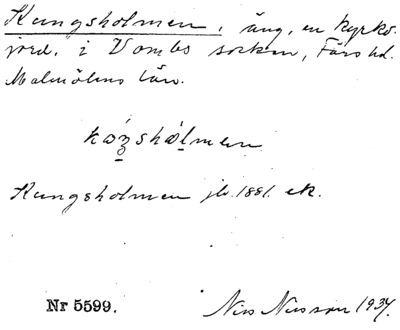 Kungsholmen, äng, en kyrko-
jord, i Vombs socken, Färs hd.
Malmöhus län.
Kungsholmen jb. 1881. ek.
Nr 5599. Nils Nilsson 1934.